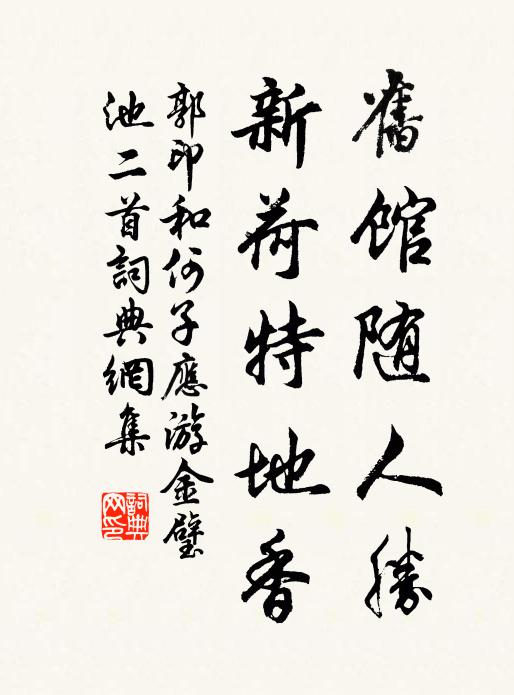 舊館随人勝
新荷特地香
郭印和何子應游金璧
池二首詞典網集
詞典
网印